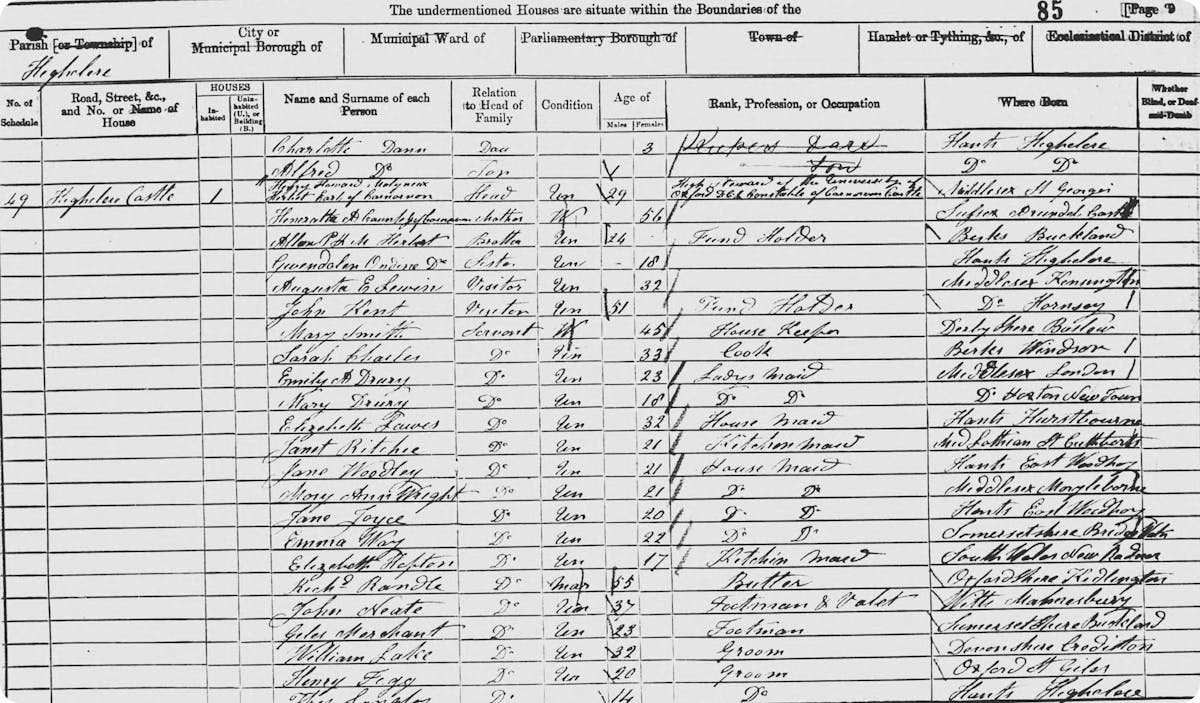 The undermentioned Houses are situate within the Boundaries of the
85 [Page 9
Parish [or Township] of
City or Municipal Borough of
Municipal Ward of
Parliamentary Borough of
Town of
Hamlet or Tything, &c., of
Ecclesiastical District of
Highclere
No. of Schedule
Road, Street, &c., and No. or Name of House
HOUSES
In-habited
Unin-habited (U.), or Building (B.)
Name and Surname of each Person
Relation to Head of Family
Condition
Age of
Males
Females
Rank, Profession, or Occupation
Where Born
Whether Blind, or Deaf-and-Dumb
Charlotte Dann Dau 3 Keepers Hants Highclere
Alfred Do Son Son Do Do
49 Highclere Castle 1 Henry Howard Molyneux Herbert Earl of Carnarvon Head Un 29 High Steward of the University of Oxford Constable of Carnarvon Castle Middlesex St Georges
Henrietta A Countess of Carnarvon Mother W 56 Sussex Arundel Castle
Allan P H M Herbert Brother Un 24 Fund Holder Berks Buckland
Gwendolen Ondine Do Sister Un 18 Hants Highclere
Augusta E Lewin Visitor Un 32 Middlesex Kensington
John Kent Visitor Un 51 Fund Holder Do Hornsey
Mary Smith Servant W 45 House Keeper Derbyshire Baslow
Sarah Charles Do Un 33 Cook Berks Windsor
Emily A Drury Do Un 23 Ladys Maid Middlesex London
Mary Drury Do Un 18 Do Do Do Hoxton New Town
Elizabeth Lawes Do Un 32 House Maid Hants Hurstbourne
Janet Ritchie Do Un 21 Kitchen Maid Mid Lothian St Cuthberts
Jane Woodley Do Un 21 House Maid Hants East Woodhay
Mary Ann Wright Do Un 21 Do Do Middlesex Marylebone
Jane Joyce Do Un 20 Do Do Hants East Woodhay
Emma Way Do Un 22 Do Do Somersetshire Bridgwater
Elizabeth Hepton Do Un 17 Kitchin Maid South Wales New Radnor
Richd Randle Do Mar 55 Butler Oxfordshire Kidlington
John Neate Do Un 37 Footman & Valet Wilts Malmesbury
Giles Merchant Do Un 23 Footman Somersetshire Buckland
William Lake Do Un 32 Groom Devonshire Crediton
Henry Figg Do Un 20 Groom Oxford St Giles
Do 14 Do Hants Highclere